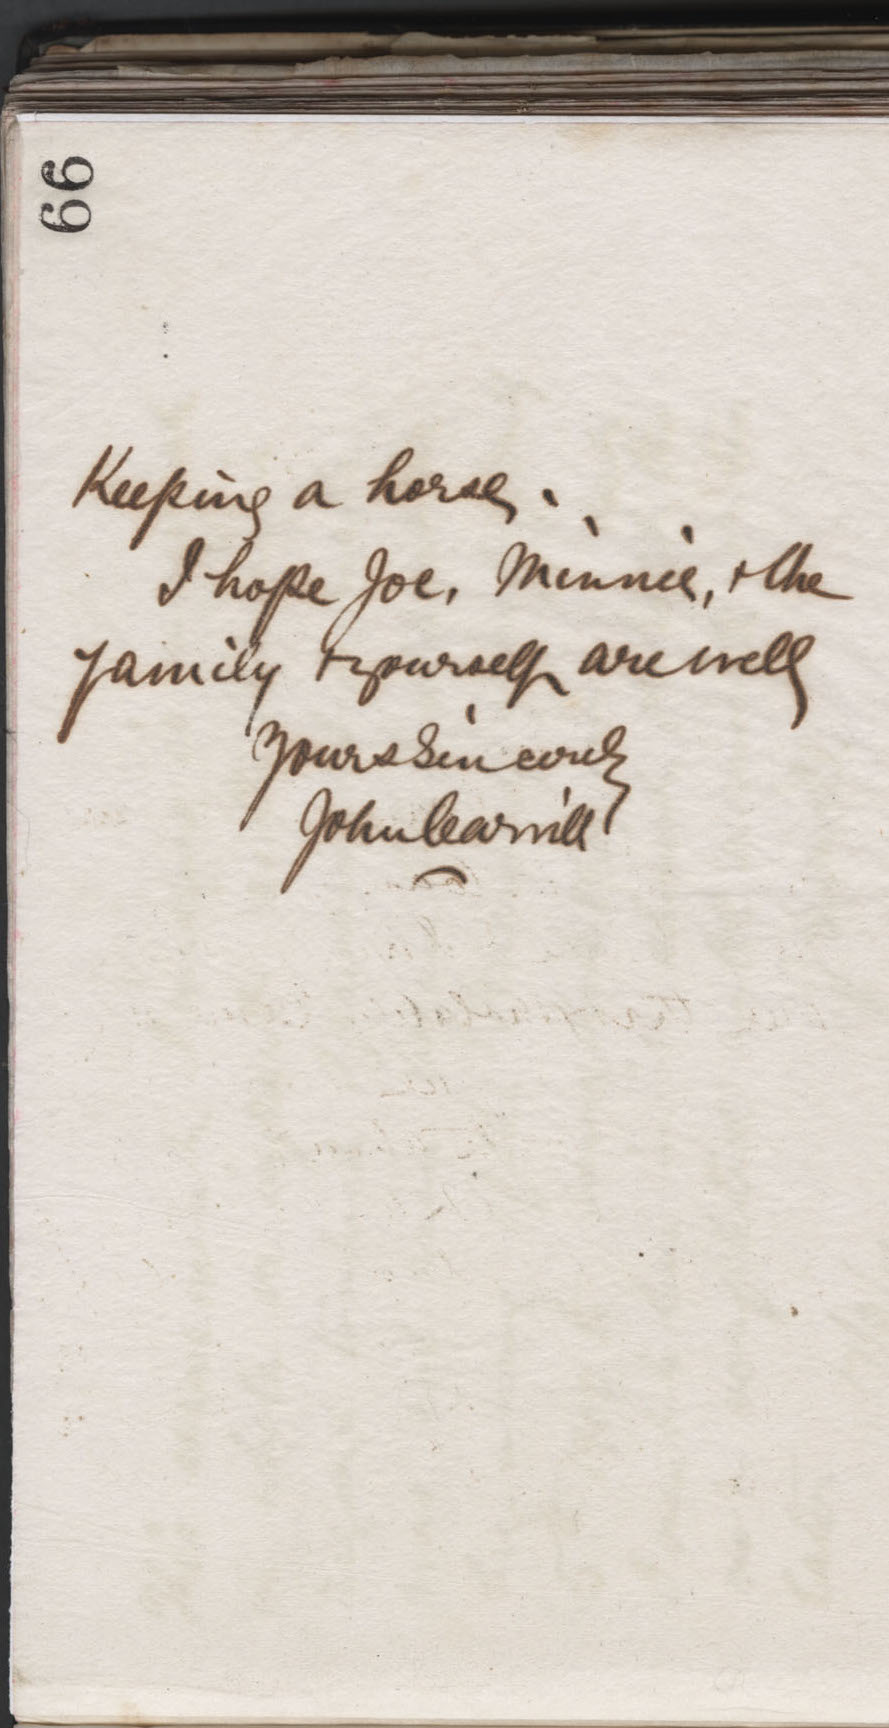 66
Keeping a horse.
I hope Joe, Minnie, + the
family + yourself are well
Yours Sincerely
John Carvill